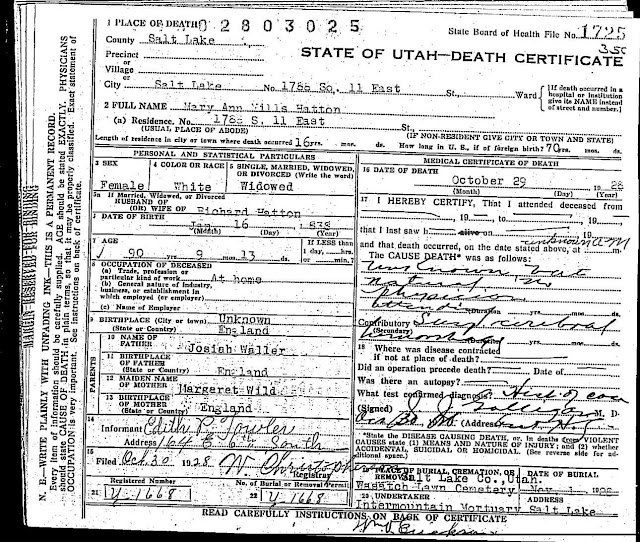 1 PLACE OF DEATH
02803025
State Board of Health File No. 1725
3.50
County Salt Lake
STATE OF UTAH—DEATH CERTIFICATE
Precinct
or
Village
or
City Salt Lake No. 1788 So. 11 East St., Ward
{If death occurred in a hospital or institution give its NAME instead of street and number.}
2 FULL NAME Mary Ann Hatton
(a) Residence. No. 1788 S. 11 East St.,
(USUAL PLACE OF ABODE) (IF NON-RESIDENT GIVE CITY OR TOWN AND STATE)
Length of residence in city or town where death occurred 16 yrs. mos. ds. How long in U. S., if of foreign birth? 70 yrs. mos. ds.
PERSONAL AND STATISTICAL PARTICULARS
3 SEX
Female
4 COLOR OR RACE
White
5 SINGLE, MARRIED, WIDOWED, OR DIVORCED (Write the word)
Widowed
5a If Married, Widowed, or Divorced
HUSBAND OF
(OR) WIFE OF Richard Hatton
6 DATE OF BIRTH Jan. 16 838
(Month) (Day) (Year)
7 AGE
90 9 13
If LESS than
1 day, hrs.
or min.
8 OCCUPATION OF DECEASED
(a) Trade, profession or
particular kind of work At home
(b) General nature of Industry,
business, or establishment in
which employed (or employer)
(c) Name of Employer
9 BIRTHPLACE (City or town) Unknown
(State or Country) England
PARENTS
10 NAME OF
FATHER Josiah Waller
11 BIRTHPLACE
OF FATHER
(State or Country) England
12 MAIDEN NAME
OF MOTHER Margaret Wild
13 BIRTHPLACE
OF MOTHER
(State or Country) England
14
Informant Edith P. Fowler
Address 164 E 6th South
15
Filed Oct. 30 1928 W. Christopherson
Registrar
Registered Number
21 Y 1668
No. of Burial or Removal Permit
22 Y 1668
MEDICAL CERTIFICATE OF DEATH
16 DATE OF DEATH
October 29 19 28
(Month) (Day) (Year)
17 I HEREBY CERTIFY, That I attended deceased from
19 to 19
that I last saw h alive on 19
and that death occurred, on the date stated above, at unknown A M
The CAUSE DEATH* was as follows:
Unknown but
natural no
Physician
Duration yrs. mos. ds.
Contributory cerebral
(Secondary)
Duration yrs. mos. ds.
18 Where was disease contracted
If not at place of death?
Did an operation precede death? Date of
Was there an autopsy?
What test confirmed diagnosis? Hist of case
(Signed) M. D.
Oct 30 (Address)
*State the DISEASE CAUSING DEATH, or, in deaths from VIOLENT CAUSES state (1) MEANS and NATURE OF INJURY; and (2) whether ACCIDENTAL, SUICIDAL or HOMICIDAL. (See reverse side for additional space.)
PLACE OF BURIAL, CREMATION, OR REMOVAL
Salt Lake Co., Utah.
Wasatch Lawn Cemetery
DATE OF BURIAL
Nov. 1 1928
20 UNDERTAKER
Intermountain Mortuary
ADDRESS
Salt Lake
READ CAREFULLY INSTRUCTIONS ON BACK OF CERTIFICATE
MARGIN RESERVED FOR BINDING
N. B.—WRITE PLAINLY WITH UNFADING INK—THIS IS A PERMANENT RECORD.
Every item of information should be carefully supplied. AGE should be stated EXACTLY. PHYSICIANS
should state CAUSE OF DEATH in plain terms, so that it may be properly classified. Exact statement of
OCCUPATION is very important. See instructions on back of certificate.